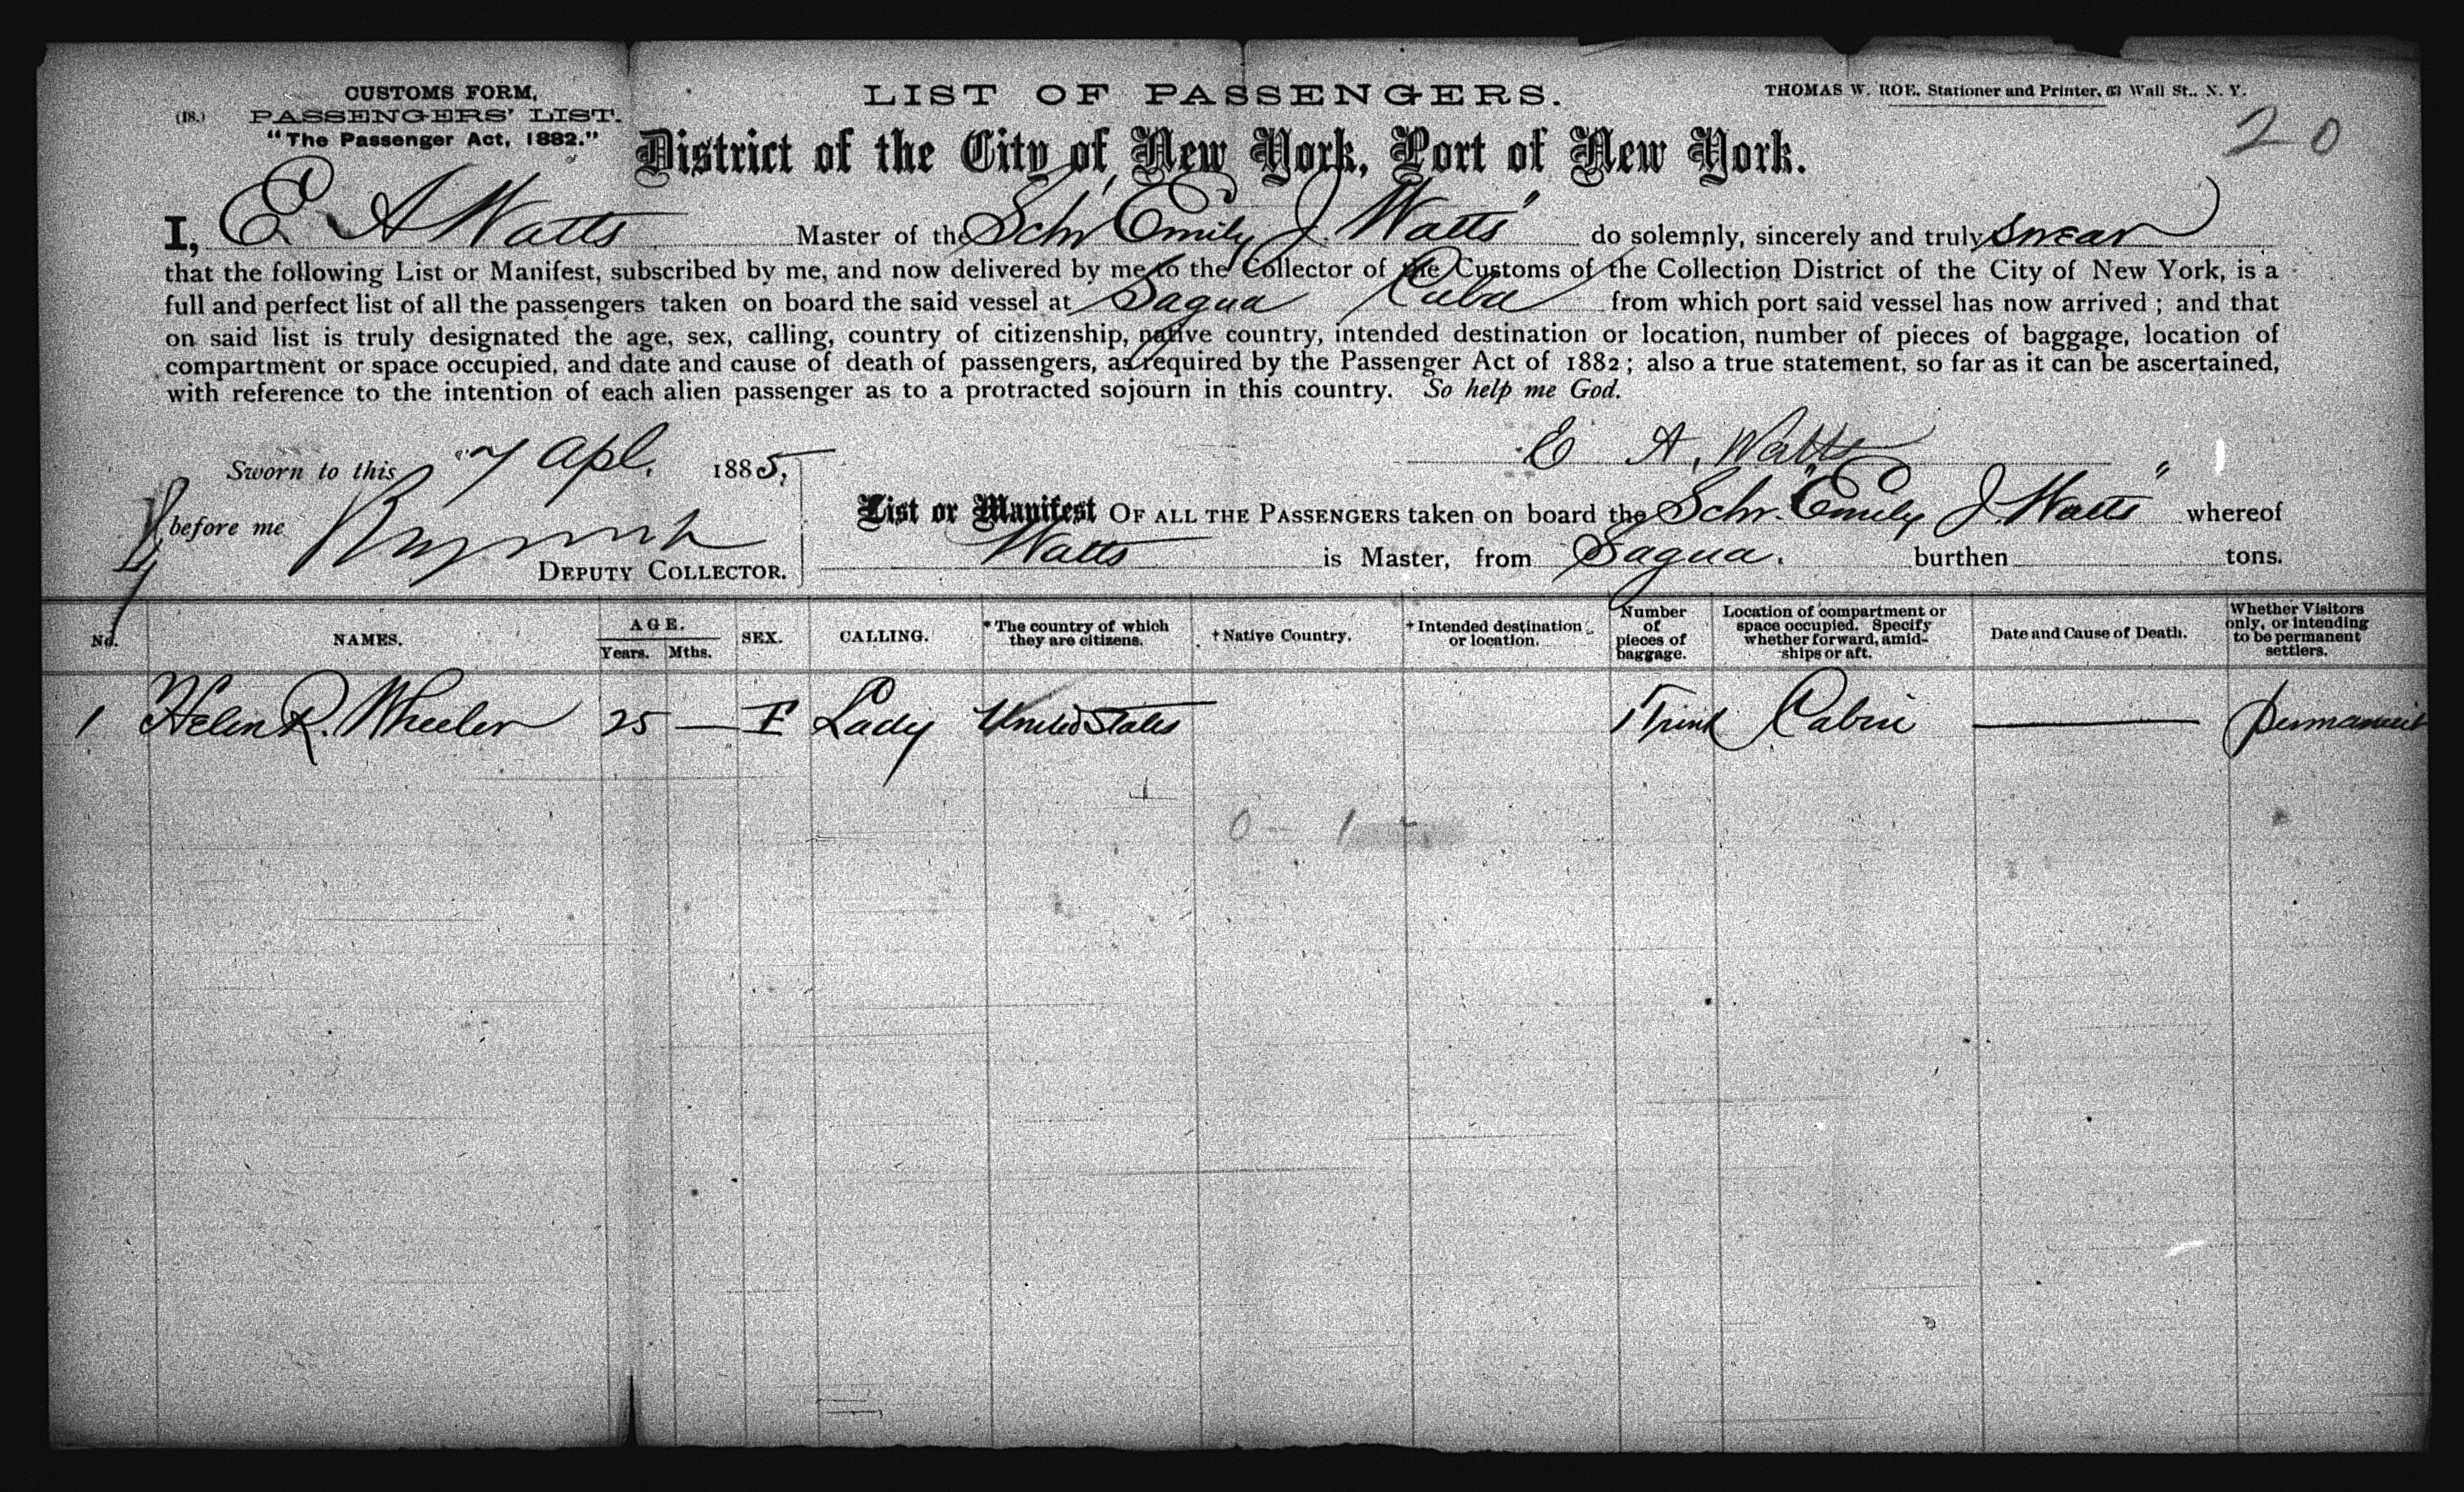 CUSTOMS FORM,
(18.) PASSENGERS' LIST.
"The Passenger Act, 1882."
LIST OF PASSENGERS.
THOMAS W. ROE, Stationer and Printer, 63 Wall St., N. Y.
20
District of the City of New York, Port of New York.
I, E A Watts Master of the Schr "Emily J. Watts" do solemnly, sincerely and truly swear
that the following List or Manifest, subscribed by me, and now delivered by me to the Collector of the Customs of the Collection District of the City of New York, is a
full and perfect list of all the passengers taken on board the said vessel at Sagua Cuba from which port said vessel has now arrived; and that
on said list is truly designated the age, sex, calling, country of citizenship, native country, intended destination or location, number of pieces of baggage, location of
compartment or space occupied, and date and cause of death of passengers, as required by the Passenger Act of 1882; also a true statement, so far as it can be ascertained,
with reference to the intention of each alien passenger as to a protracted sojourn in this country. So help me God.
Sworn to this 7 Apl. 1885,
E A. Watts
before me
DEPUTY COLLECTOR.
List or Manifest OF ALL THE PASSENGERS taken on board the Schr. "Emily J. Watts" whereof
Watts is Master, from Sagua. burthen tons.
No. NAMES. AGE. Years. Mths. SEX. CALLING. * The country of which they are citizens. † Native Country. † Intended destination or location. Number of pieces of baggage. Location of compartment or space occupied. Specify whether forward, amid-ships or aft. Date and Cause of Death. Whether Visitors only, or intending to be permanent settlers.
1 Helen R. Wheeler 25 — F Lady United States 1 Trunk Cabin — permanent
0 - 1